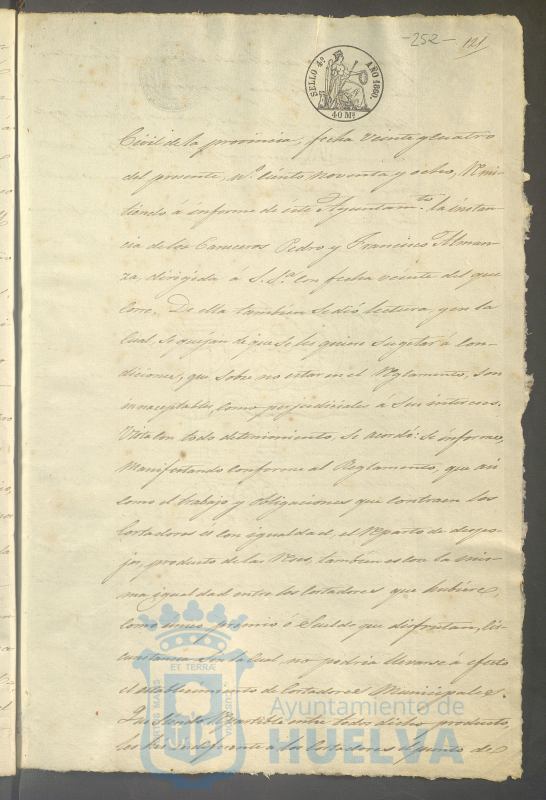 -252- 121
SELLO 4º AÑO 1860.
40 Mˢ
Civil de la provincia, fecha veinte y cuatro
del presente, nº. ciento noventa y ocho, remi-
tiendo á informe de este Ayuntamᵗᵒ. la instan-
cia de los Carniceros Pedro y Francisco Alman-
za, dirigida á S.Sª. con fecha veinte del que
corre. De ella tambien se dió lectura, y en la
cual, se quejan de que se les quiere sugetar á con-
diciones, que sobre no estar en el Reglamento, son
innaceptables, como perjudiciales á sus intereses.
Vista con todo detenimiento, se acordó: se informe,
manifestando conforme al Reglamento, que asi
como el trabajo y obligaciones que contraen los
Cortadores es con igualdad, el reparto de despo-
jos, producto de las reses, tambien es con la mis-
ma igualdad entre los Cortadores que hubiere,
como unico premio ó sueldo que disfrutan, cir-
cunstancia sin la cual no podria llevarse á efecto
el establecimiento de Cortadores Municipales.
Que siendo repartible entre todos dicho producto,
les es indiferente á los Cortadores el punto de
ET TERRÆ
Ayuntamiento de
HUELVA